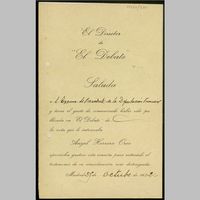 El Director
de
"El Debate"
Saluda
al Excmo. Sr. Presidente de la Diputacion Provincial
y tiene el gusto de comunicarle haber sido pu-
blicada en El Debate de
la nota que le interesaba
Angel Herrera Oria
aprovecha gustoso esta ocasión para reiterarle el
testimonio de su consideración más distinguida.
Madrid, de Octubre de